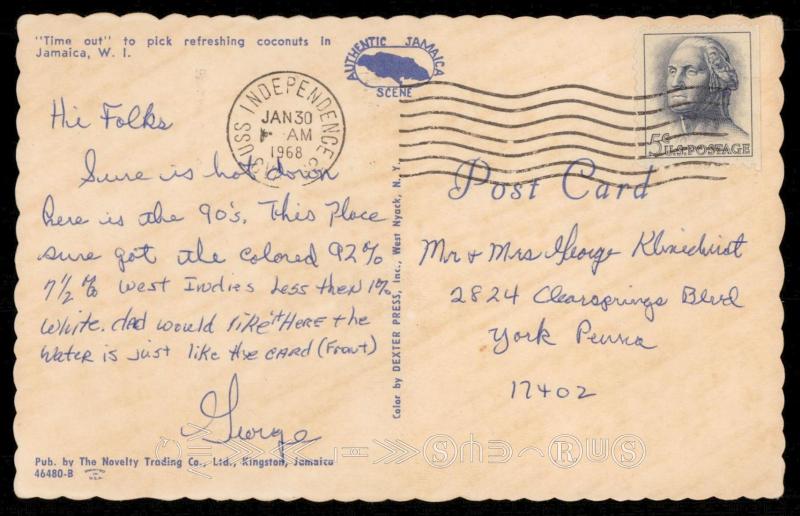 "Time out" to pick refreshing coconuts in
Jamaica, W. I.
AUTHENTIC JAMAICA
SCENE
USS INDEPENDENCE
JAN 30
AM
1968
5¢ U.S. POSTAGE
Post Card
Hie Folks
Sure is hot down
here is the 90's. This Place
sure got the colored 92%
7 1/2 % West Indies Less then 1%
White. dad would like it HERE the
Water is just like the CARD (Front)
George
Mr & Mrs George Klinedinst
2824 Clearsprings Blvd
York Penna
17402
Color by DEXTER PRESS, Inc., West Nyack, N. Y.
Pub. by The Novelty Trading Co., Ltd., Kingston, Jamaica
46480-B